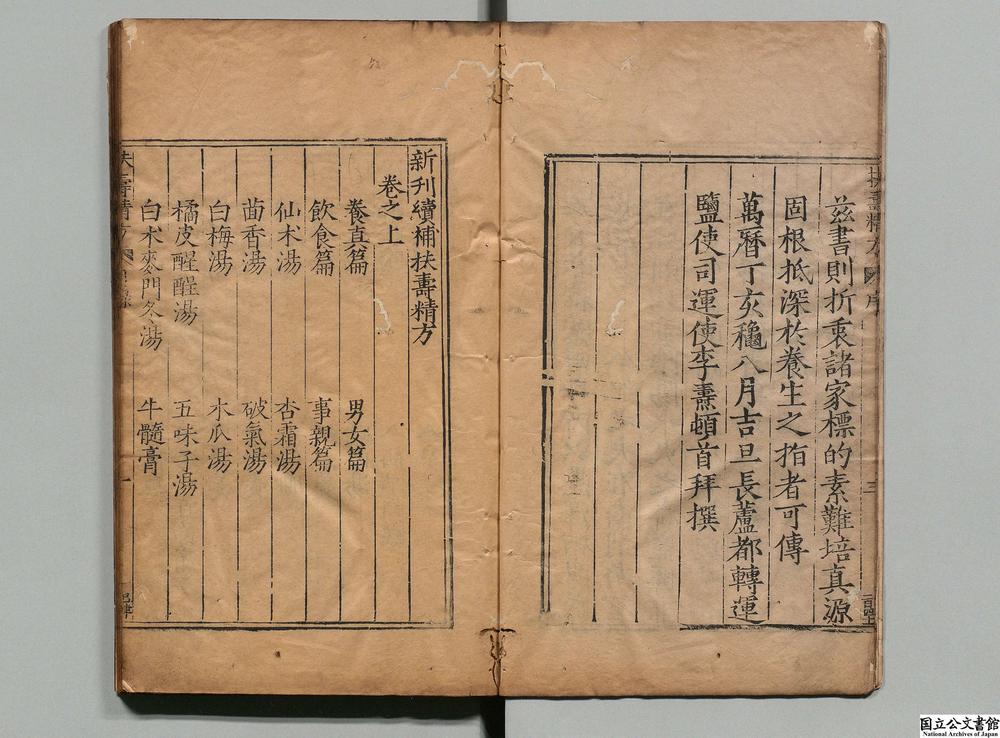 茲書則折衷諸家標的素難培真源
固根抵深於養生之指者可傳
萬曆丁亥龝八月吉旦長蘆都轉運
鹽使司運使李燾頓首拜撰
新刊續補扶壽精方
卷之上
養真篇 男女篇
飲食篇 事親篇
仙术湯 杏霜湯
茴香湯 破氣湯
白梅湯 木瓜湯
橘皮醒酲湯 五味子湯
白术麥門冬湯 牛髓膏
国立公文書館
National Archives of Japan